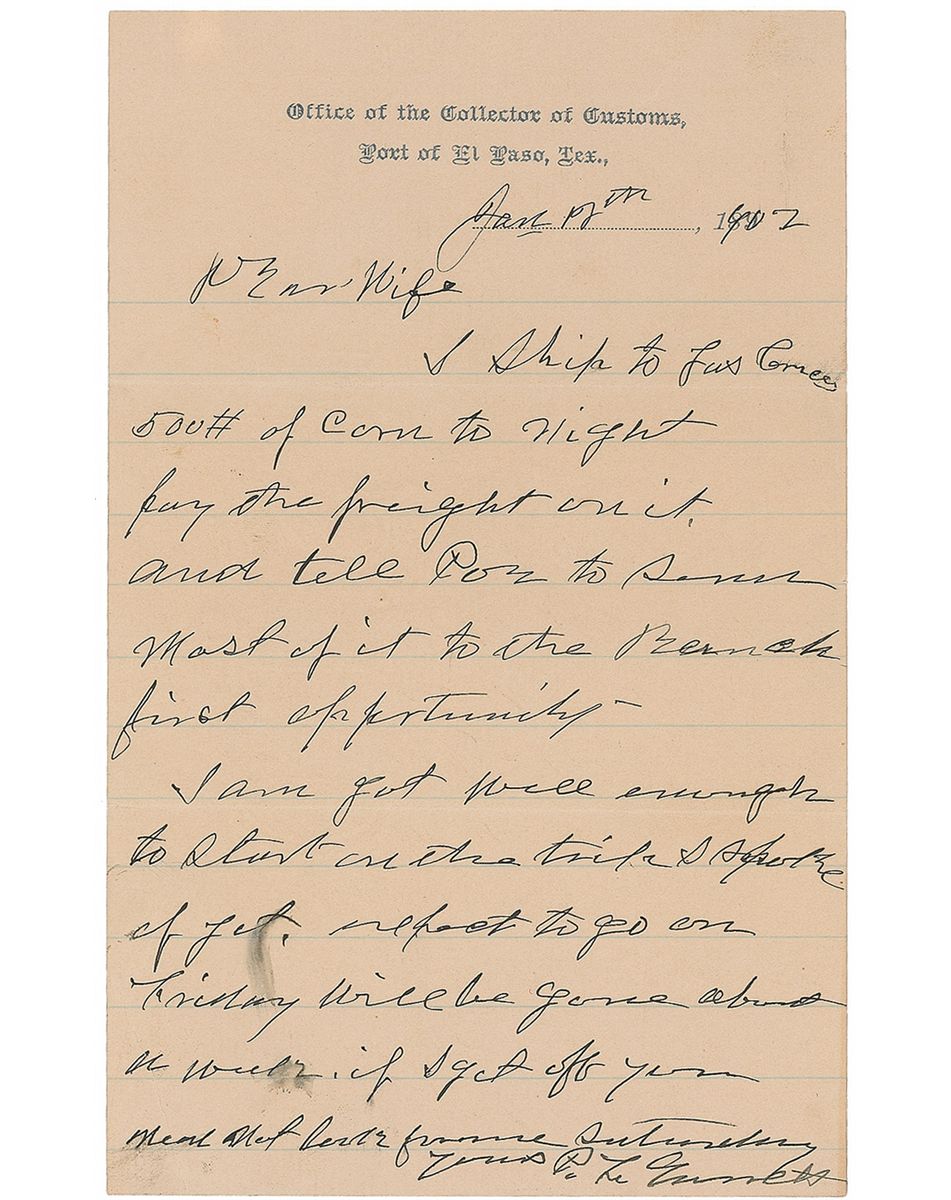 Office of the Collector of Customs,
Port of El Paso, Tex.,
Jan 12th, 1902
Dear Wife
I Ship to Las Cruces
500# of Corn to Night
pay the freight on it.
and tell Poe to send
Most of it to the Ranch
first opportunity
I am got Well enough
to Start on the trip I spoke
of yet. expect to go on
Friday Will be gone about
a week. if I get off you
need Not look for me Saturday
yours P. F. Garrett